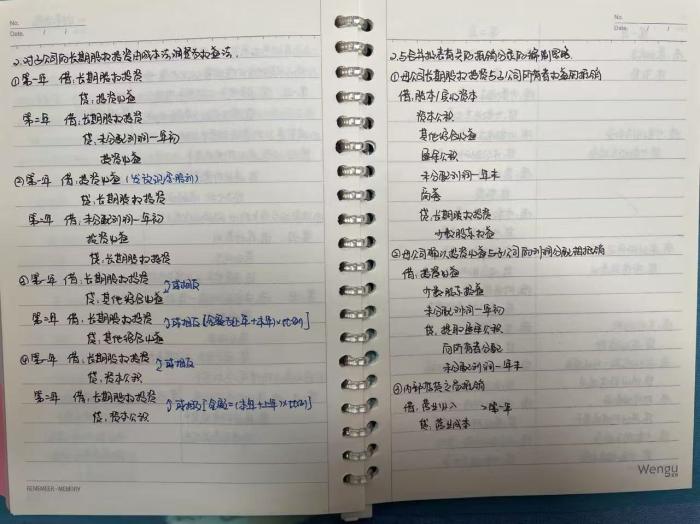 No.
Date. / /
2.对子公司的长期股权投资由成本法调整为权益法.
①第一年 借:长期股权投资
贷:投资收益
第二年 借:长期股权投资
贷:未分配利润—年初
投资收益
②第一年 借:投资收益(发放现金股利)
贷:长期股权投资
第二年 借:未分配利润—年初
投资收益
贷:长期股权投资
③第一年 借:长期股权投资 或相反
贷:其他综合收益
第二年 借:长期股权投资 或相反[金额为(上年+本年)×比例]
贷:其他综合收益
④第一年 借:长期股权投资 或相反
贷:资本公积
第二年 借:长期股权投资 或相反[金额=(本年+上年)×比例]
贷:资本公积
REMEMBER-MEMORY
No.
Date. / /
2.与合并报表有关的抵销分录的编制思路
①母公司长期股权投资与子公司所有者权益的抵销
借:股本/实收资本
资本公积
其他综合收益
盈余公积
未分配利润—年末
商誉
贷:长期股权投资
少数股东权益
②母公司确认投资收益与子公司的利润分配相抵销
借:投资收益
少数股东损益
未分配利润—年初
贷:提取盈余公积
向所有者分配
未分配利润—年末
③内部存货交易抵销
借:营业收入 >第一年
贷:营业成本
Wengu